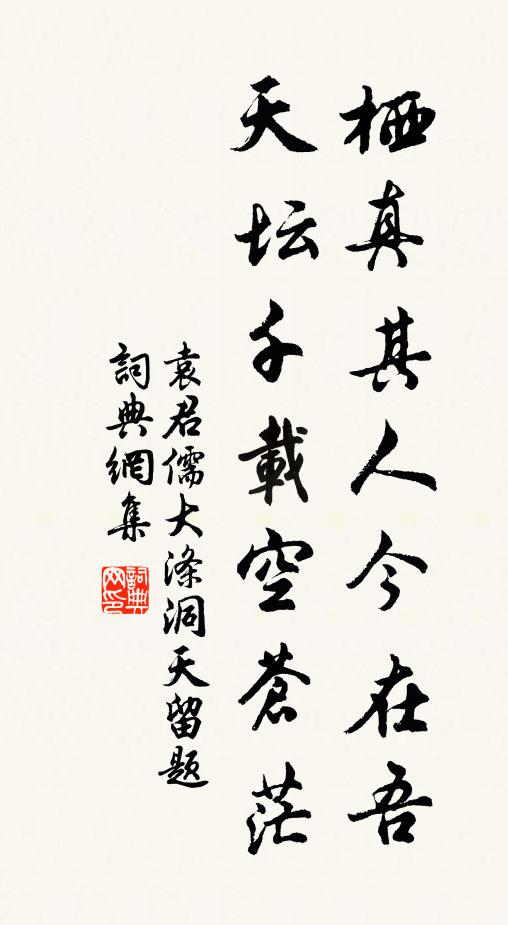 栖真其人今在吾
天坛千載空蒼茫
袁君儒大涤洞天留题
詞典網集
詞典网印